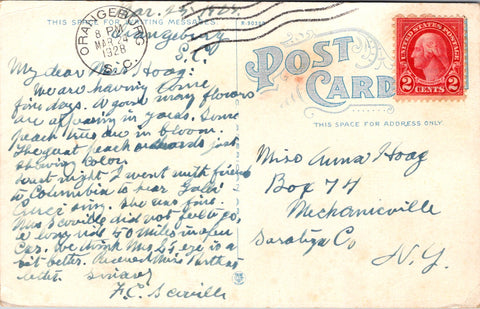 THIS SPACE FOR WRITING MESSAGES
Mar. 25, 1928
Orangeburg
S.C.
ORANGEBURG
8 PM
MAR 25
1928
S.C.
My dear Miss Hoag:
We are having some
fine days. A good many flowers
are appearing in yards. Some
peach trees are in bloom.
The great peach orchards just
showing color.
Last night I went with friend
to Columbia to hear
sing. She was fine.
Mrs. Scoville did not feel to go,
a long ride 50 miles in open
car. We think Mrs. is a
bit better. Received Miss
letter. Sincerely
F.C. Scoville
POST CARD
THIS SPACE FOR ADDRESS ONLY.
UNITED STATES POSTAGE
2 CENTS 2
Miss Anna Hoag
Box 74
Mechanicville
Saratoga Co
N.Y.